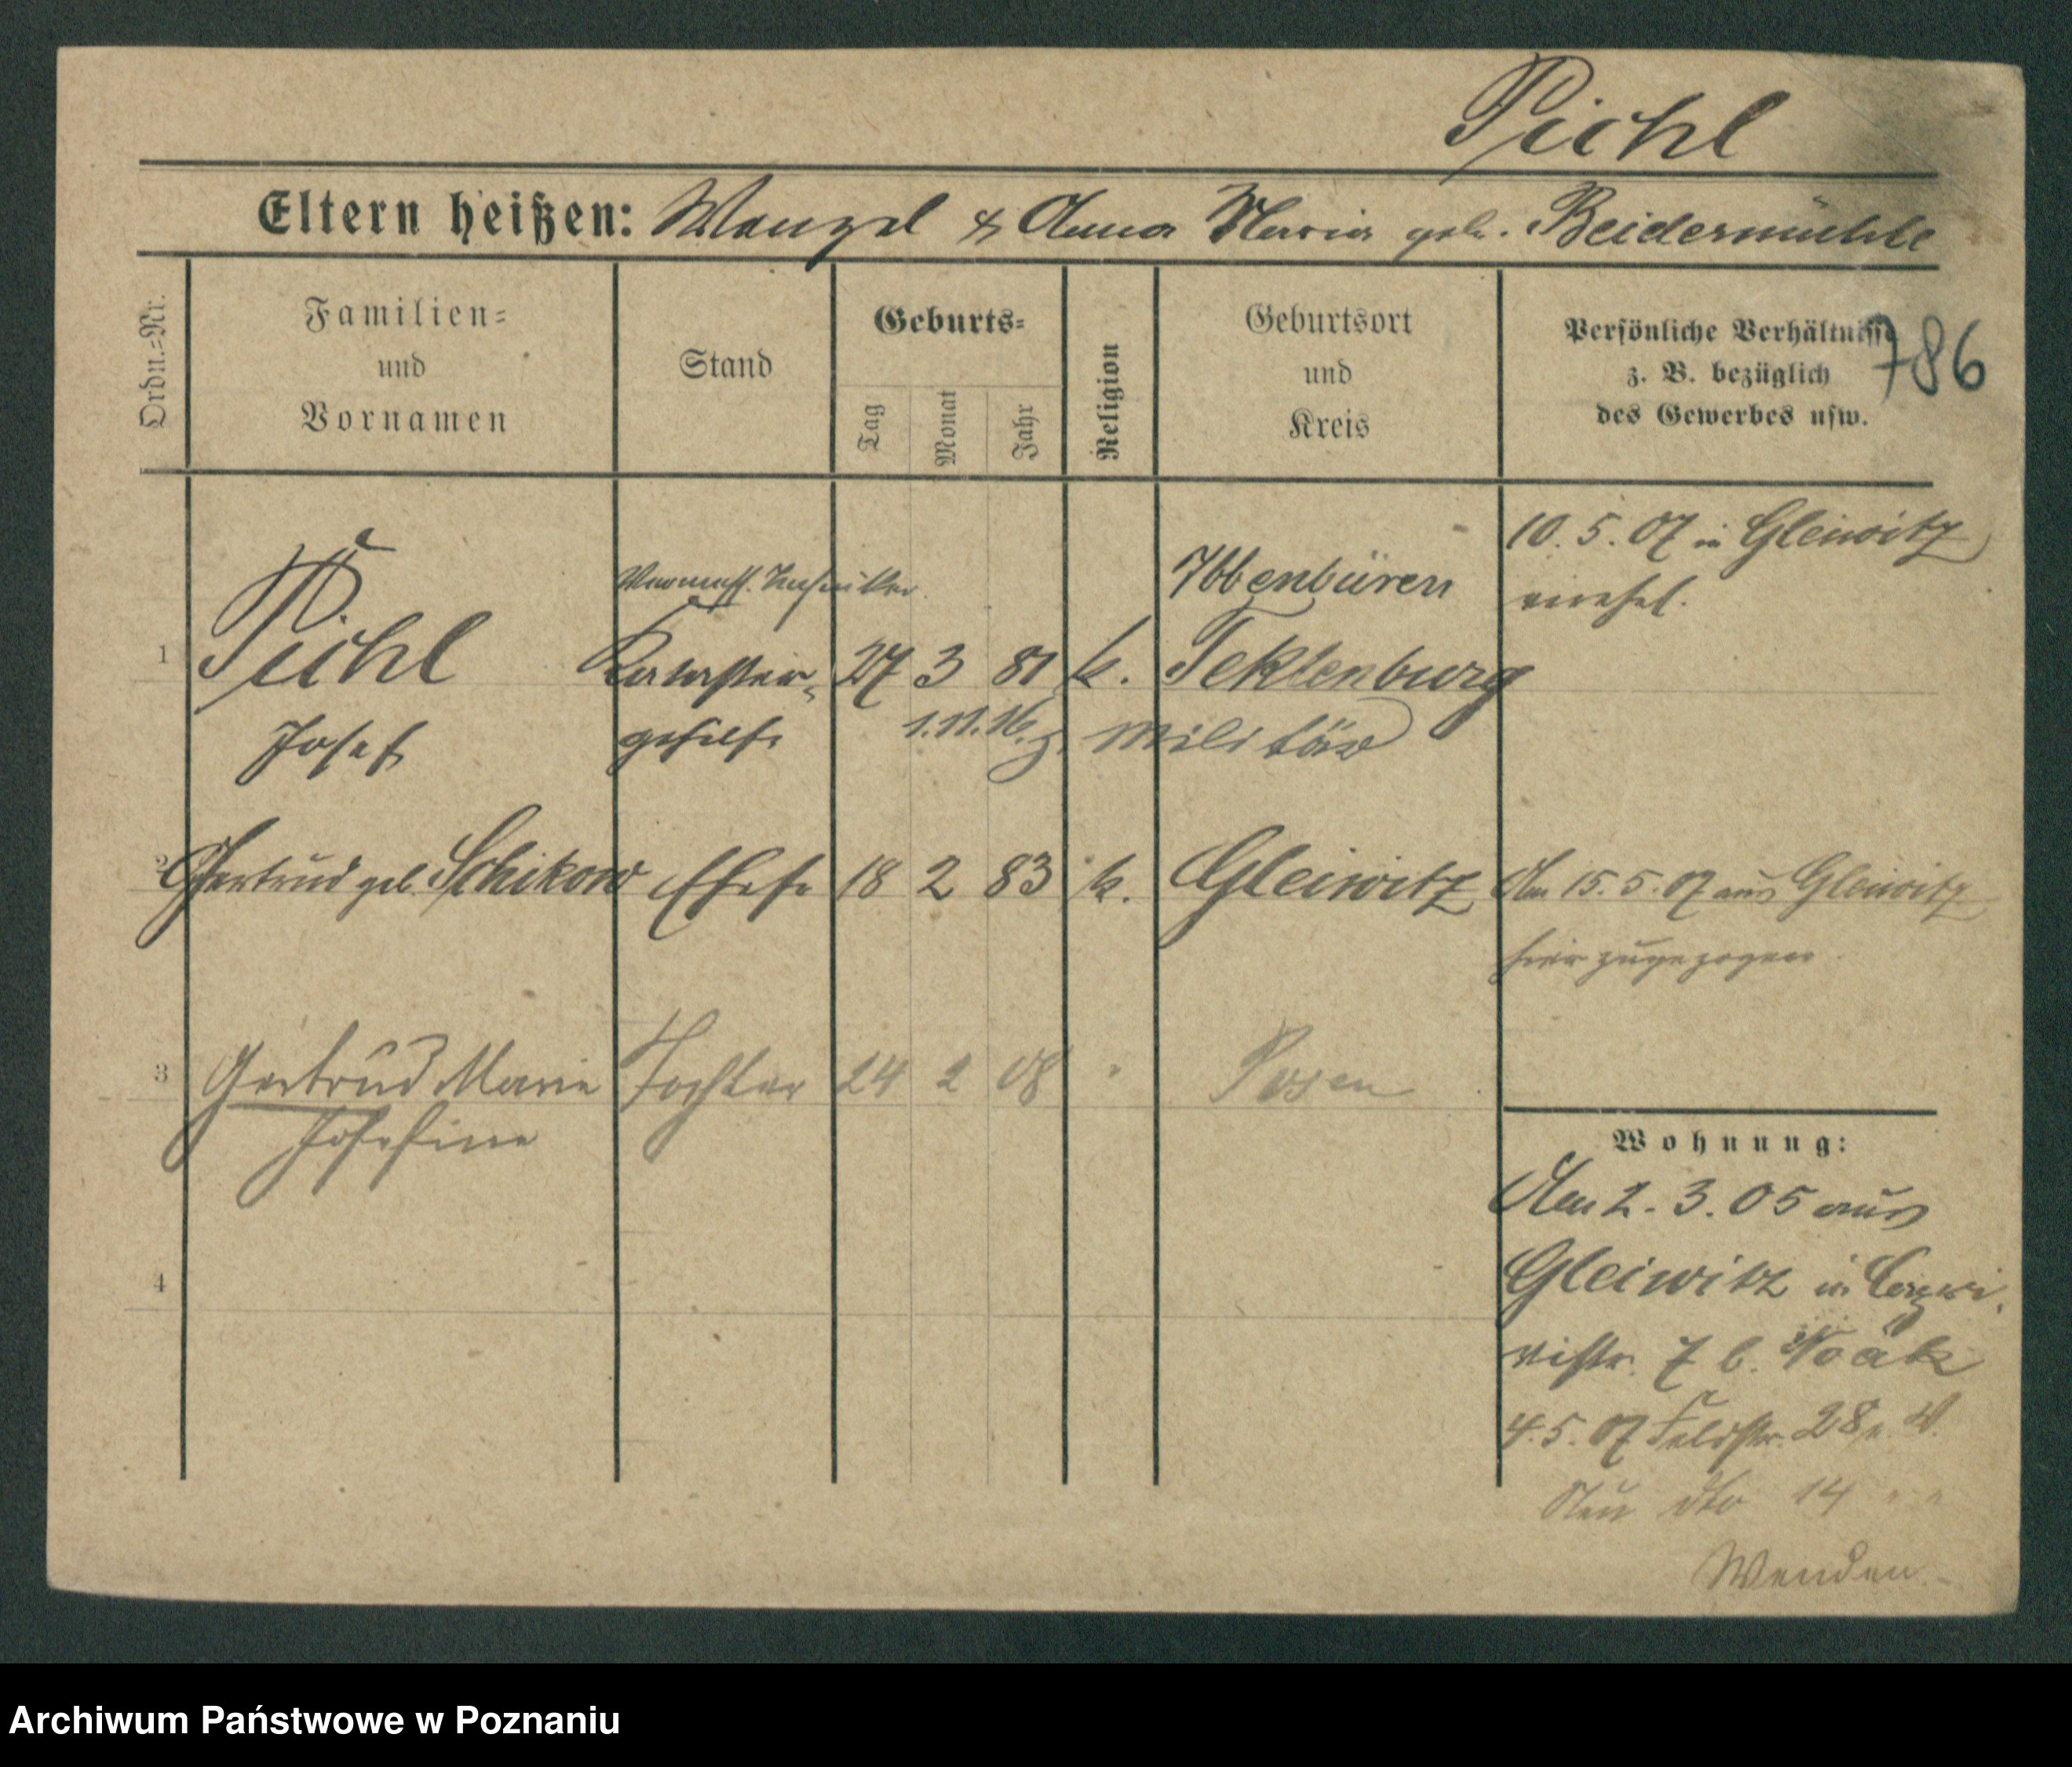 Pichl
Eltern heißen: Wenzel & Anna Maria geb. Beidermühle
Ordn.=Nr.
Familien=
und
Vornamen
Stand
Geburts=
Tag
Monat
Jahr
Religion
Geburtsort
und
Kreis
Persönliche Verhältnisse
z. B. bezüglich
des Gewerbes usw.
786
10. 5. 07 in Gleiwitz
verehel.
Vermess. Techniker
Ibbenbüren
1 Pichl Kataster- 27 3 81 k. Teklenburg
Josef gehilfe 1.11.16. z. Militär
2 Gertrud geb. Schikow Ehefr 18 2 83 k. Gleiwitz Am 15. 5. 07 aus Gleiwitz
hier zugezogen.
3 Gertrud Marie Tochter 24 2 08 " Posen
Josefine
Wohnung:
Am 2. 3. 05 aus
4
Gleiwitz in
7 b. Noak
4. 5. 07 Feldstr. 28 e. W.
Neu dto 14 " "
Wenden
Archiwum Państwowe w Poznaniu